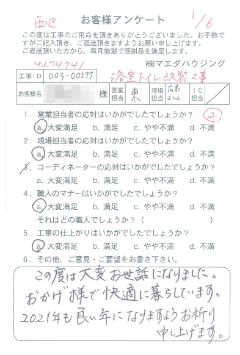 西区
お客様アンケート
1/6
この度は工事のご用命を頂きありがとうございました。お手数で
すがご記入頂き、ご返送頂きますようお願い申し上げます。
ご返送頂いた方から、毎月抽選で感謝品を進呈します。
㈱マエダハウジング
工事ID 003-00277 浴室トイレ改装工事
お客様名 様 営業担当 現場担当 IC担当
1. 営業担当者の応対はいかがでしたでしょうか?
a. 大変満足 b. 満足 c. やや不満 d. 不満
2. 現場担当者の応対はいかがでしたでしょうか?
a. 大変満足 b. 満足 c. やや不満 d. 不満
3. コーディネーターの応対はいかがでしたでしょうか?
a. 大変満足 b. 満足 c. やや不満 d. 不満
4. 職人のマナーはいかがでしたでしょうか?
a. 大変満足 b. 満足 c. やや不満 d. 不満
それはどの職人でしょうか?( )
5. 工事の仕上がりはいかがでしたでしょうか?
a. 大変満足 b. 満足 c. やや不満 d. 不満
6. その他、ご意見・ご要望をお書き下さい。
この度は大変お世話になりました。
おかげ様で快適に暮らしています。
2021年も良い年になりますようお祈り
申し上げます。